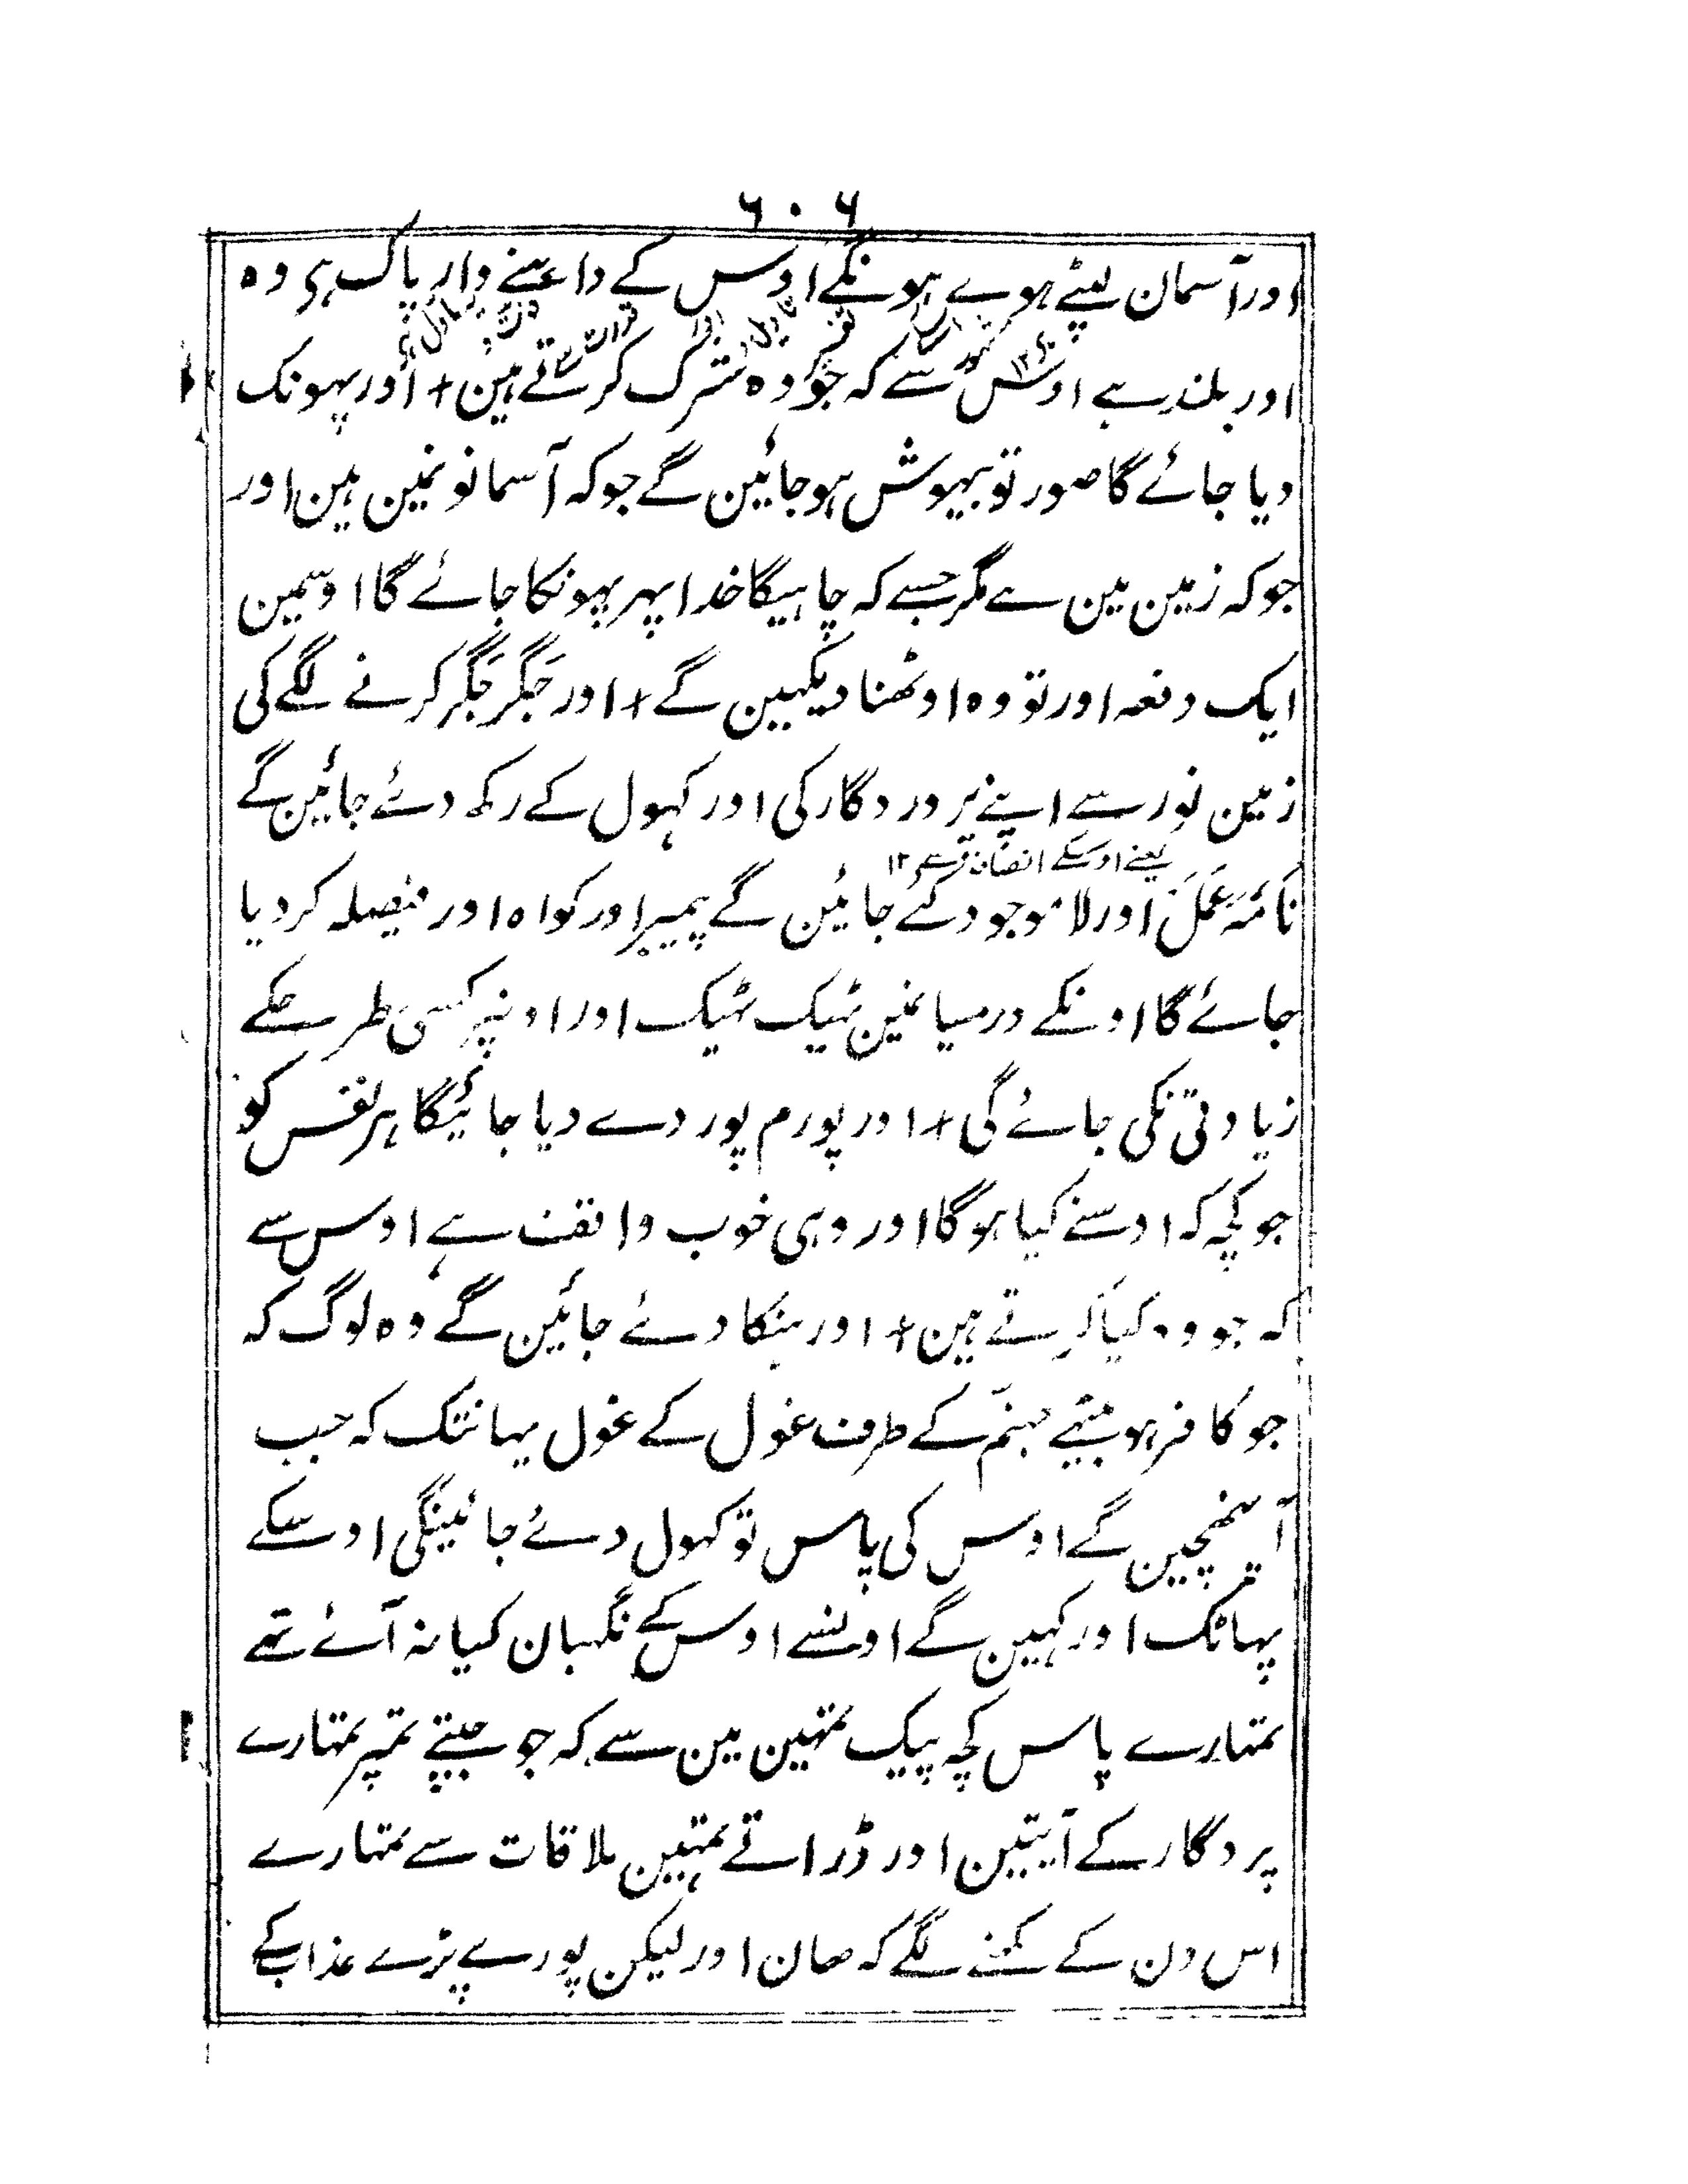 ۶۰۶
اور آسمان لپٹے ہوے ہونگے اوس کے داہنے وار پاک ہی وہ
اور بلند ہے اوس سے کہ جو وہ شرک کرتے ہین + اور پہونک
دیا جائے گا صور تو بیہوش ہو جائین گے جو کہ آسمانونمین ہین اور
جو کہ زمین مین ہے مگر جسے کہ چاہیگا خدا پہر پہونکا جائے گا اوسمین
ایک دفعہ اور تو وہ اوٹھنا دیکہین گے + اور جگر جگر کرنے لگے کی
زمین نور سے اپنے پروردگار کی اور کہول کے رکھ دئے جائین گے
یعنے اوسکے انصاف سے ۱۲
نامۂ عمل اور لا موجود کئے جائین گے پیمبر اور گواہ اور فیصلہ کر دیا
جائے گا اونکے درمیانمین ٹہیک ٹہیک اور اونپر کسی طرحکے
زیادتی نکی جائے گی + اور پورم پور دے دیا جائیگا ہر نفس کو
جو کچہ کہ اوسنے کیا ہو گا اور وہی خوب واقف ہے اوس سے
کہ جو وہ کیا کرتے ہین + اور ہنکا دئے جائین گے وہ لوگ کہ
جو کافر ہو بیٹہے جہنم کے طرف غول کے غول یہانتک کہ جب
آپہنچین گے اوس کی پاس تو کہول دئے جائینگی اوسکے
پہاٹک اور کہین گے اونسے اوس کے نگہبان کیا نہ آئے تہے
تمہارے پاس کچہ پیک تمہین مین سے کہ جو جپتے تمپر تمہارے
پردگار کے آیتین اور ڈراتے تمہین ملاقات سے تمہارے
اس دن کے کہنے لگے کہ ہان اور لیکن پورے پڑے عذاب کے